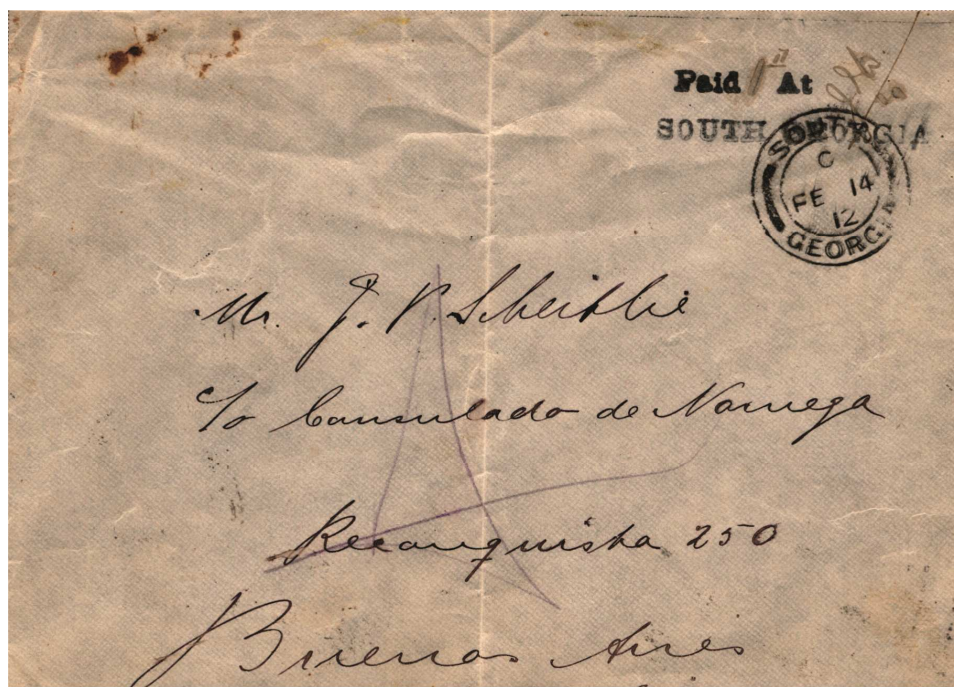 Paid 1d At
SOUTH GEORGIA
SOUTH
C
FE 14
12
GEORGIA
Mr. J. V. Scheitlie
c/o Consulado de Noruega
Reconquista 250
Buenos Aires